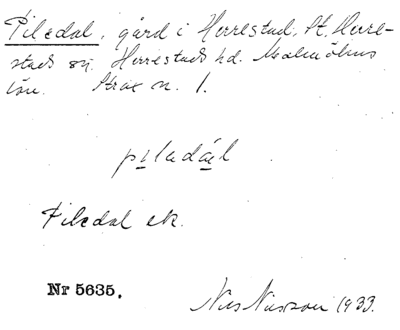 Piledal, gård i Herrestad, St. Herre-
stads sn. Herrestads hd. Malmöhus
län. Strax n. 1.
piladál
Piledal ek.
Nr 5635.
Nils Nilsson 1933.